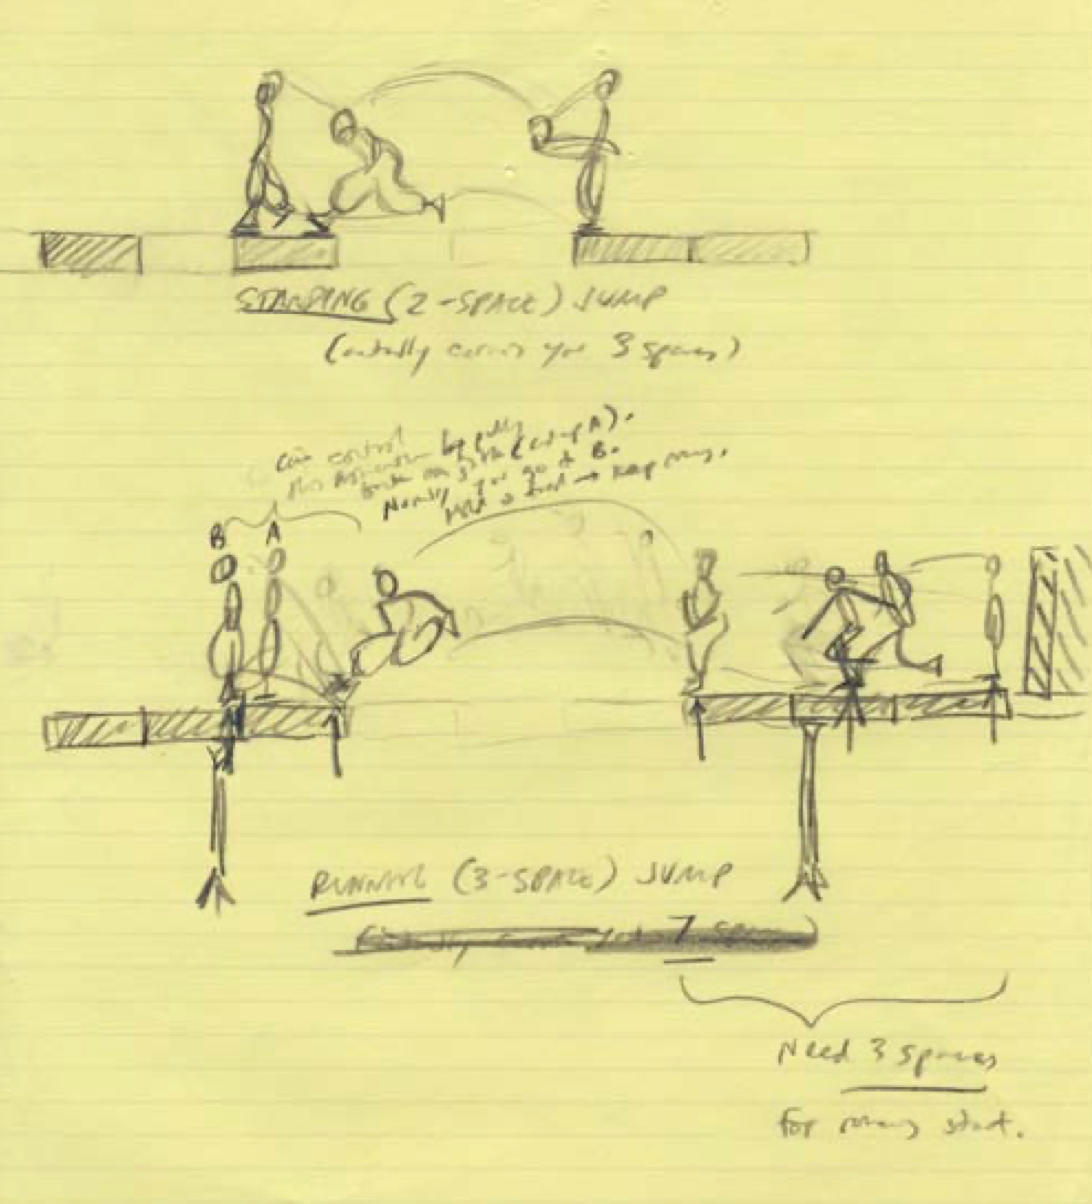 STANDING (2-SPACE) JUMP
(actually carries you 3 spaces)
Can control
this momentum by pulling
back on stick (ending A).
Normally you go to B.
Hold → keep running.
B A
RUNNING (3-SPACE) JUMP
7
Need 3 spaces
for running start.